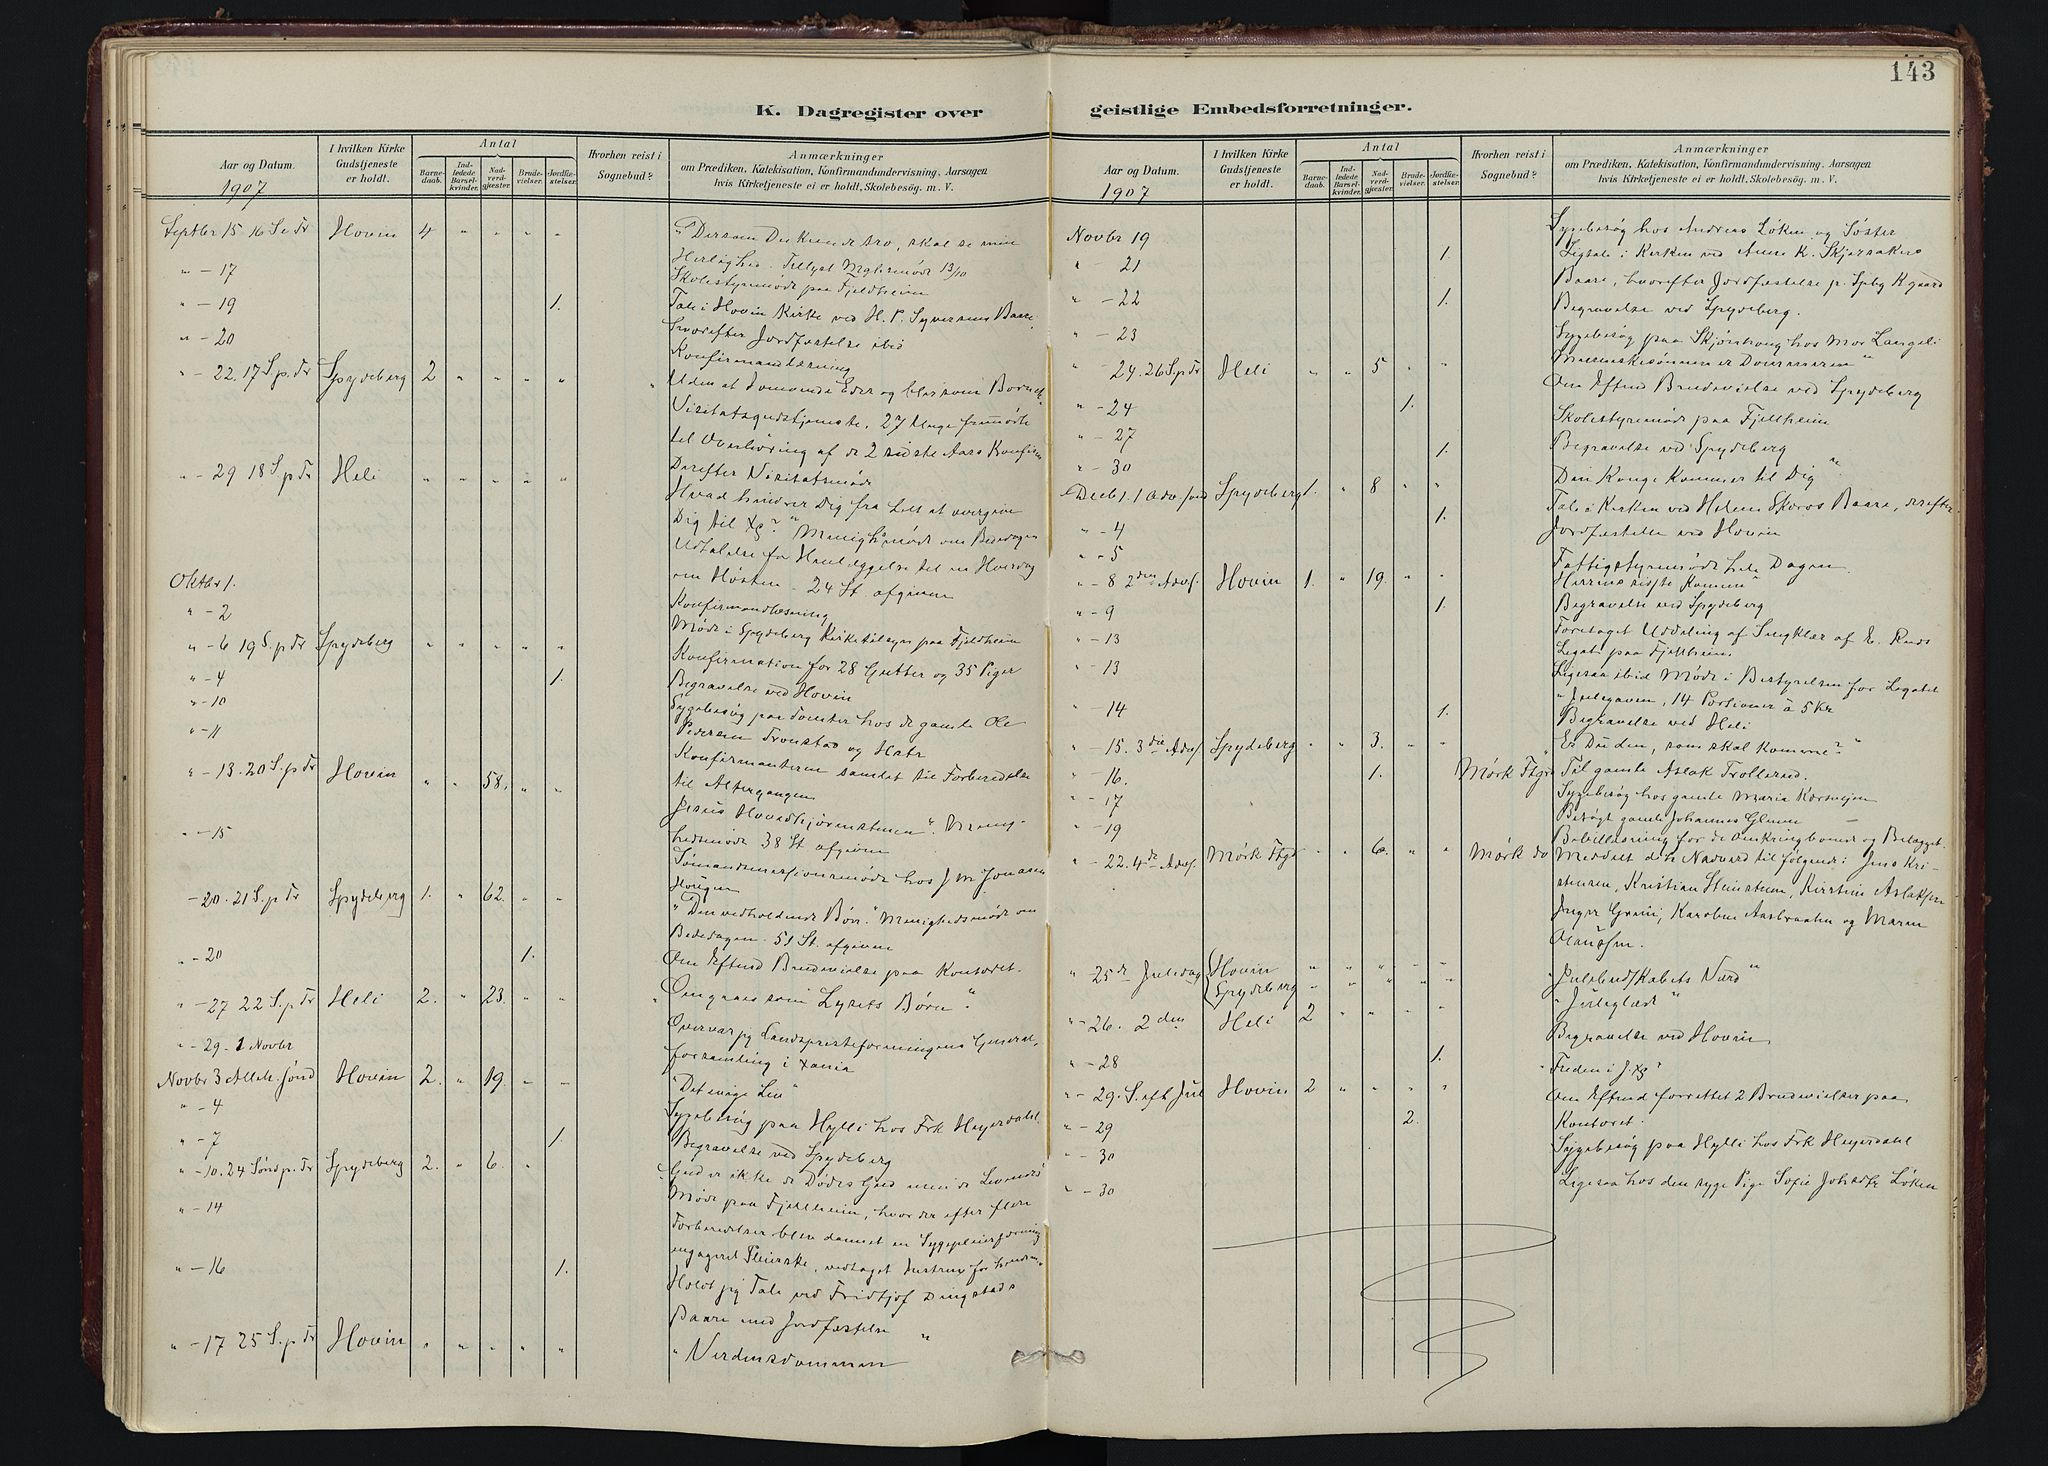 143
K. Dagregister over
Aar og Datum.
I hvilken Kirke Gudstjeneste er holdt.
Antal
Barnedaab.
Indledede Barselkvinder.
Nadverdgjæster.
Brudevielser.
Jordfæstelser.
Hvorhen reist i Sognebud?
Anmærkninger
om Prædiken, Katekisation, Konfirmandundervisning, Aarsagen
hvis Kirketjeneste ei er holdt, Skolebesög. m. V.
1907
Septbr 15 16 S. e Tr Hovin 4 " " " " "Dersom Du kunde tro, skal se min
Herlighed. Tillyst Mghsmøde 13/10
" - 17 Skolestyremøde paa Fjeldheim
" - 19 1. Tale i Hovin Kirke ved H. P. Syversens Baare
hvorefter Jordfæstelse ibid
" - 20 Konfirmandlæsning
" - 22. 17 S. p. Tr Spydeberg 2 " " " " "Uden at I omvende Eder og blive som Børn"
Visitatsgudstjeneste, 27 Unge fremmødte
til Overhøring af de 2 sidste Aars Konfirm
Derefter Visitatsmøde
" - 29 18 S p Tr Heli " " " " " Hvad hindrer Dig fra helt at overgive
Dig til Xp?" Menighsmøde om Bededagen
Udtalelse for Henlæggelse til en Hverdag
om Høsten - 24 St. afgiven
Oktbr 1. Konfirmandlæsning
" - 2 Møde i Spydeberg Kirketilsyn paa Fjeldheim
" - 6 19 S. p. Tr Spydeberg " " " " " Konfirmation for 28 Gutter og 35 Piger
" - 4 1. Begravelse ved Hovin
" - 10 Sygebesøg paa Tomter hos de gamle Ole
Pedersen Tronstad og
" - 11 Konfirmanterne samlet til Forberedelse
til Altergangen
" - 13. 20 S. p Tr Hovin " " 58. " " Jesus Hovedhjørnestenen". Menighedsmøde 38 St afgiven
" - 15 Sømandsmissionsmøde hos J M Jonasen
Haugen
- 20. 21 S. p Tr Spydeberg 1. " 62. " " "Den vedholdende Bøn." Menighedsmøde om
Bededagen - 51 St. afgiven
" - 20 1. Om Eftmd Brudevielse paa Kontoret.
" - 27 22 S. p Tr Heli 2. " 23. " " "Omgaaes som Lysets Børn".
" - 29 - 1 Novbr Overvar jeg Landspresteforeningens General-
forsamling i Xania
Novbr 3 Alleh. Sønd Hovin 2. " 19. " " "Det evige Liv"
" - 4 Sygebesøg paa Hylli hos Frk Heyerdahl.
" - 7 1. Begravelse ved Spydeberg
" - 10. 24 Sønd p. Tr Spydeberg 2. " 6. " Gud er ikke de Dødes Gud men de Levendes
" - 14 Møde paa Fjellheim, hvor der efter flere
Forberedelser blev dannet en Sygepleieforening
engageret Pleierske, vedtaget Instrux for hende
" - 16 1. Holdt jeg Tale ved Fridtjof Dingstads
Baare med Jordfæstelse
" - 17 25 S. p Tr Hovin " " " " " "Verdensdommen"
geistlige Embedsforretninger.
Aar og Datum.
I hvilken Kirke Gudstjeneste er holdt.
Antal
Barnedaab.
Indledede Barselkvinder.
Nadverdgjester.
Brudevielser.
Jordfæstelser.
Hvorhen reist i Sognebud?
Anmærkninger
om Prædiken, Katekisation, Konfirmandundervisning. Aarsagen
hvis Kirketjeneste ei er holdt, Skolebesög. m. V.
1907
Novbr 19 Sygebesøg hos Andreas Løken og Søster
" - 21 1. Ligtale i Kirken ved Anne K. Skjørsakers
Baare, hvorefter Jordfæstelse p. Spbg Kgaard
" - 22 1. Begravelse ved Spydeberg.
" - 23 Sygebesøg paa Skjønhaug hos Mor Langeli
" - 24. 26 S. p Tr Heli " " 5 " " Menneskesønnen er Dommeren"
" - 24 1. Om Eftmd Brudevielse ved Spydeberg
" - 27 Skolestyremøde paa Fjellheim
" - 30 1. Begravelse ved Spydeberg
Decbr 1. 1 Adv. Sønd Spydeberg 1. " 8 " " Din Konge kommer til Dig"
" - 4 1. Tale i Kirken ved Helene Skoros Baare, derefter
Jordfæstelse ved Hovin
" - 5 Fattigstyremøde hele Dagen
" - 8 2den Advs. Hovin 1. " 19. " " Herrens sidste Komme"
" - 9 1. Begravelse ved Spydeberg
" - 13 Foretaget Uddeling af Sengklær af E. Ruds
Legat paa Fjellheim.
" - 13 Ligesaa ibid Møde i Bestyrelsen for Legatet
"Julegaven, 14 Portioner à 5 kr
" - 14 1. Begravelse ved Heli
" - 15. 3die Advs Spydeberg " " 3. " " "Er Du den, som skal komme?"
" - 16. 1. Mørk Ftgd Til gamle Aslak Trollerud.
" - 17 Sygebesøg hos gamle Maria Korsveien
" - 19 Besøgt gamle Johannes Glenne
Bibellæsning for de Omkringboende og Belægget.
" - 22. 4de Advs. Mørk Ftgd " " 6. " " Mørk do Meddelt den Nadverd til følgende: Jens Kri-
stensen, Kristian Stenstrøm, Kirstine Aslaksen
Inger Grini, Karoline Aasbraaten og Maren
Olausen.
" - 25de Juledag Hovin " " " " " "Julebudskabets Værd"
Spydeberg " " " " " "Juleglæde"
" - 26. 2den Heli 2 " " " "
" - 28 1. Begravelse ved Hovin
" - 29. S. eft Jul Hovin 2 " " " " "Freden i J. Xp"
" - 29 2. Om Eftmd forrettet 2 Brudevielser paa
Kontoret.
" - 30 Sygebesøg paa Hylli hos Frk Heyerdahl
" - 30 Ligesaa hos den syge Pige Sofie Løken